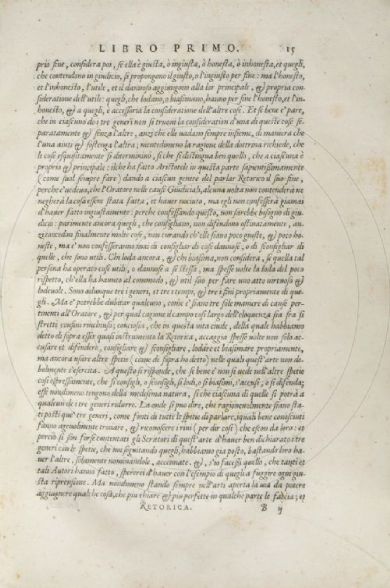 LIBRO PRIMO. 15
prio fine, considera poi, se ella è giusta, ò ingiusta, ò honesta, ò inhonesta, et quegli,
che contendono in giudicio, si propongono il giusto, o l'ingiusto per fine: ma l'honesto,
et l'inhonesto, l'utile, et il dannoso aggiongono alla lor principale, & propria con
sideratione dell'utile: quegli, che lodano, o biasimano, hanno per fine l'honesto, et l'in-
honesto, & a quegli, è accessoria la consideratione dell'altre cose. Et se bene e' pare,
che in ciascuno de i tre generi non si truoui la consideration d'una di queste cose se-
paratamente & senza l'altre, anzi che elle uadano sempre insieme, di maniera che
l'una aiuti & sostenga l'altra; nientedimeno la ragion della dottrina richiede, che
le cose squisitamente si determinino, si che si distingua ben quello, che a ciascuna è
proprio & principale: il che ha fatto Aristotele in questa parte
(come suol sempre fare) dando a ciascun genere del parlar Retorico il suo fine,
perche e' uedeua, che l'Oratore nelle cause Giudiciali, alcuna uolta non contenderà ne
negherà la cosa esser stata fatta, et hauer nociuto, ma egli non confesserà giamai
d'hauer fatto ingiustamente: perche confessando questo, non sarebbe bisogno di giu-
dicio: parimente ancora quegli, che consigliano, non difendono ostinatamente, an-
zi concedono finalmente molte cose, non curando ch'elle siano poco giuste, & poco ho-
neste, ma e' non confesseranno mai di consigliar di cose dannose, o di sconsigliar di
quelle, che sono utili. Chi loda ancora, & chi biasima, non considera, se quella tal
persona ha operato cose utili, o dannose a se stessa, ma spesse uolte la loda del poco
rispetto, ch'ella ha hauuto al commodo, & util suo per fare uno atto uirtuoso &
lodeuole. Sono adunque tre i generi, et tre i tempi, & tre i fini propriamente di que-
gli. Ma e' potrebbe dubitar qualcuno, come e' siano tre sole maniere di cause per-
tinenti all'Oratore, & per qual cagione il campo così largo dell'eloquenza sia fra sì
stretti confini rinchiuso; conciosia, che in questa uita ciuile, della quale habbiamo
detto di sopra esser quasi instrumento la Retorica, accaggia spesse uolte non solo ac-
cusare et defendere, consigliare & sconsigliare, lodare et biasimare propriamente,
ma ancora usare altre spetie (come di sopra ho detto) nelle quali quest'arte non de-
bolmente s'esercita. A questo si risponde, che se bene e' non si uede nell'altre spetie
così espressamente, che si consigli, o sconsigli, si lodi, o si biasimi, s'accusi, o si defenda;
esse nondimeno tengono della medesima natura, si che ciascuna di quelle si potrà a
qualcun de i tre generi ridurre. La onde si può dire, che ragioneuolmente siano sta-
ti posti que' tre generi, come fonti di tutti le spetie di parlare, i quali bene conosciuti
fanno ageuolmente trouare, & riconoscere i riui (per dir così) che escon da loro: et
perciò si son forse contentati gli Scrittori di quest'arte d'hauer ben dichiarato i tre
generi con le spetie, che noi seguitando quegli, habbiamo già posto, bastando loro ha-
uer l'altre, solamente nominandole, accennate. & s'io facessi quello, che tanti et
tali Autori hanno fatto, spererei d'hauer con l'esempio di quegli a fuggire ogni giu-
sta riprensione. Ma nondimeno stando sempre nell'arte aperta la uia da potere
aggiugnere qualche cosa, che piu chiare & piu perfette in qualche parte le faccia; et
RETORICA. B ij